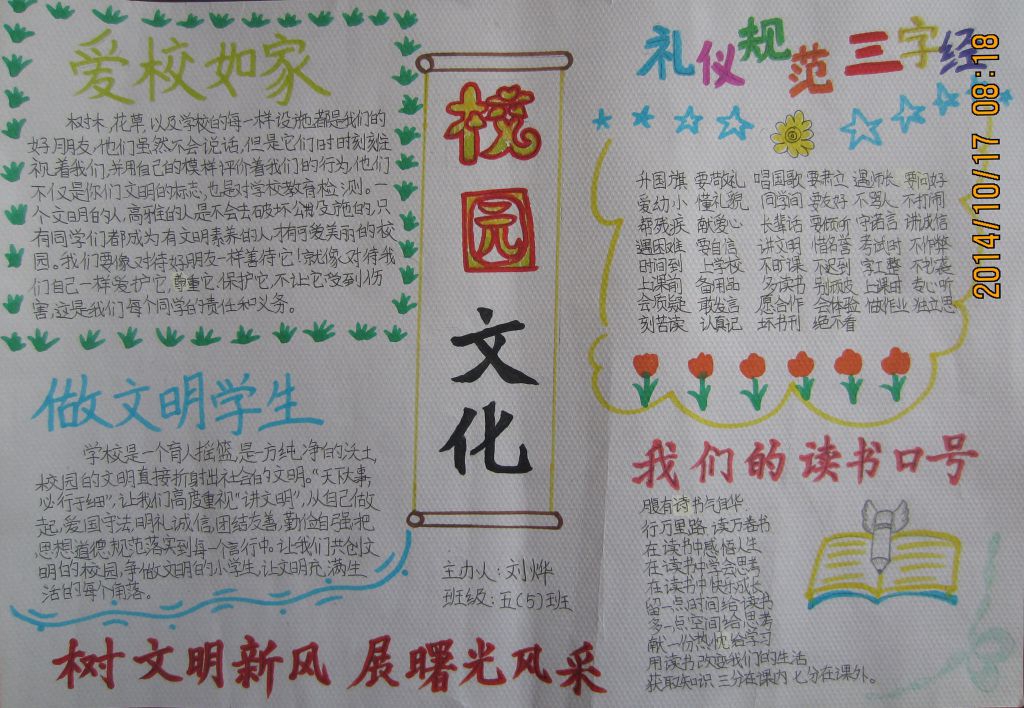 爱校如家
树木,花草,以及学校的每一样设施,都是我们的
好朋友,他们虽然不会说话,但是它们时时刻刻注
视着我们,并用自己的模样评价着我们的行为,他们
不仅是你们文明的标志,也是对学校教育检测。一
个文明的人,高雅的人是不会去破坏公共设施的,只
有同学们都成为有文明素养的人,才有可爱美丽的校
园。我们要像对待好朋友一样善待它!就像对待我
们自己一样爱护它,尊重它,保护它,不让它受到伤
害,这是我们每个同学的责任和义务。
做文明学生
学校是一个育人摇篮,是一方纯净的沃土,
校园的文明直接折射出社会的文明。“天下大事,
必行于细”,让我们高度重视“讲文明”,从自己做
起,爱国守法,明礼诚信,团结友善,勤俭自强,把
思想道德规范落实到每一个言行中。让我们共创文
明的校园,争做文明的小学生,让文明充满生
活的每个角落。
树文明新风 展曙光风采
校园文化
主办人:刘烨
班级:五(5)班
礼仪规范三字经
升国旗 要敬礼 唱国歌 要肃立 遇师长 要问好
爱幼小 懂礼貌 同学间 要友好 不骂人 不打闹
帮残疾 献爱心 长辈话 要倾听 守诺言 讲诚信
遇困难 要自信 讲文明 惜名誉 考试时 不作弊
时间到 上学校 不旷课 不迟到 字工整 不抄袭
上课前 备用品 多读书 别顽皮 上课时 专心听
会质疑 敢发言 愿合作 会体验 做作业 独立思
刻苦读 认真记 坏书刊 绝不看
我们的读书口号
腹有诗书气自华
行万里路,读万卷书
在读书中感悟人生
在读书中学会思考
在读书中快乐成长
留一点时间给读书
多一点空间给思考
献一份热忱给学习
用读书改变我们的生活
获取知识 三分在课内 七分在课外。
2014/10/17 08:18